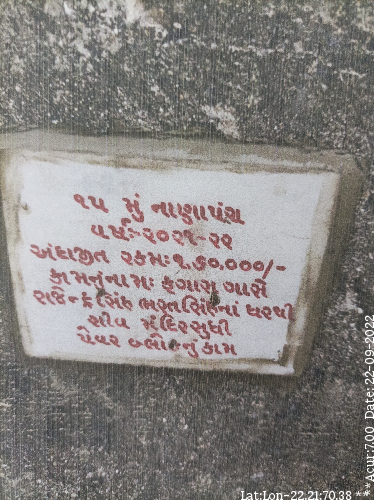 ૧૫ મું નાણાપંચ
વર્ષઃ-૨૦૨૧-૨૨
અંદાજીત રકમઃ૧.૬૦.૦૦૦/-
કામનુંનામઃ કંગારા ગામે
રાજેન્દ્રસિંહ ભરતસિંહનાં ઘરથી
શીવ મંદિરસુધી
પેવર બ્લોકનું કામ
Lat:Lon-22.21:70.38 ***Acur:7.00 Date:22-09-2022